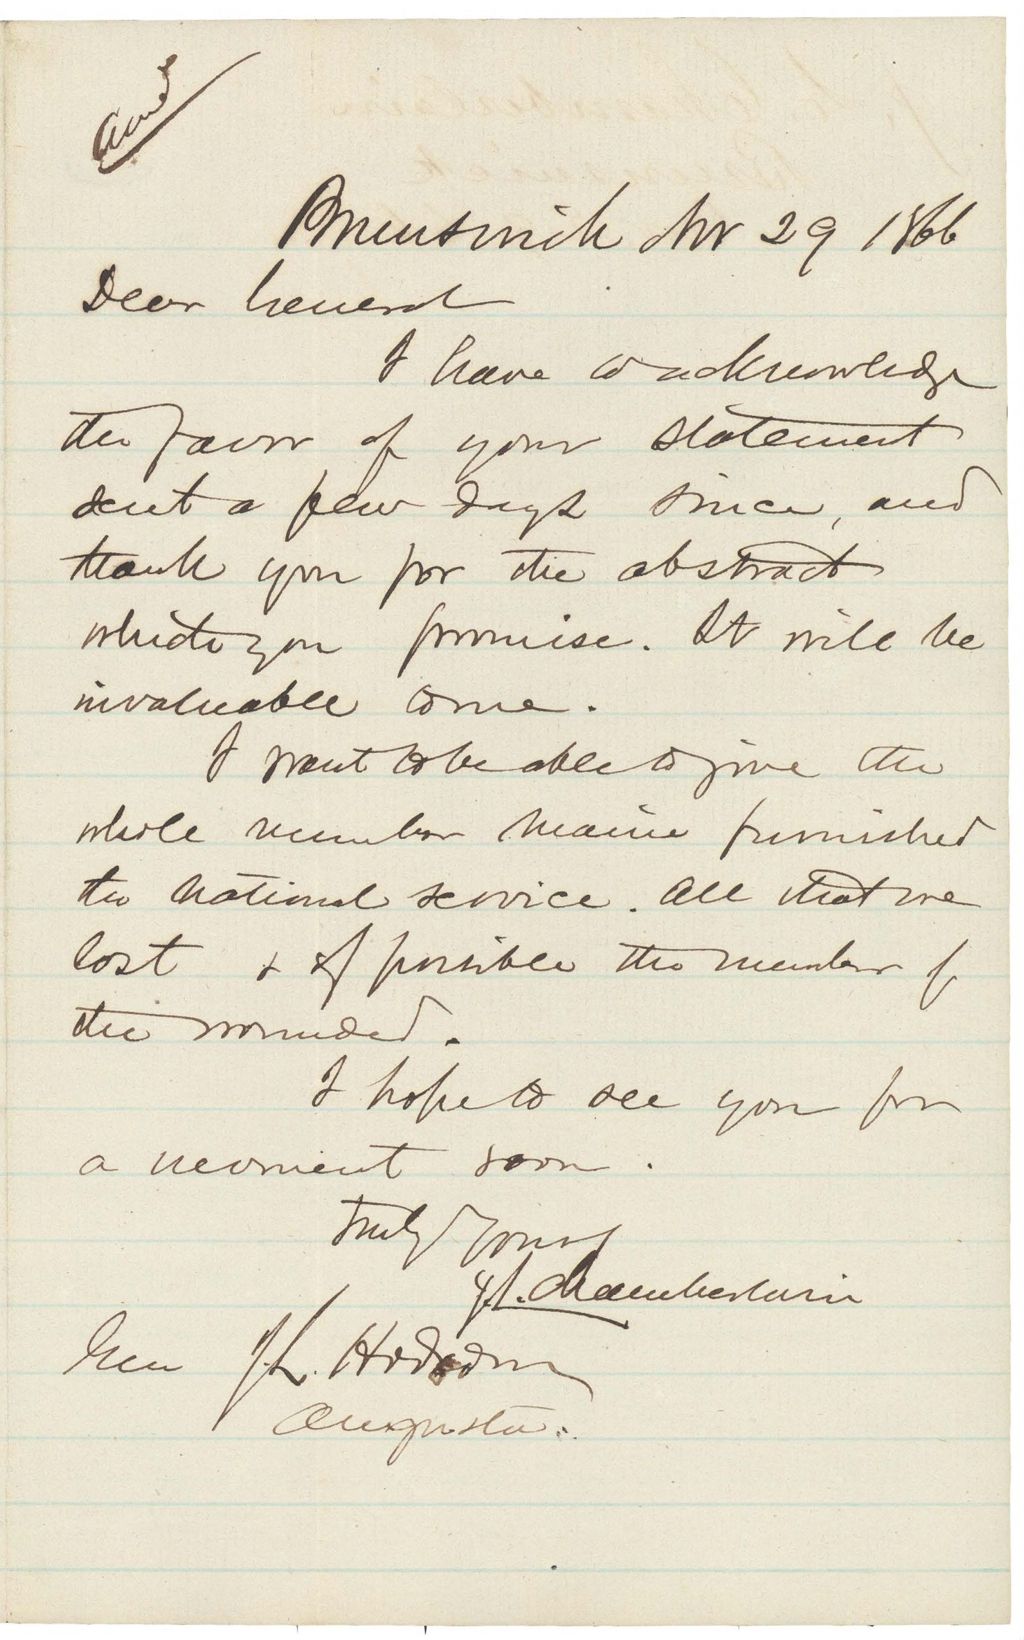 Brunswick Nov 29 1866
Dear General
I have to acknowledge
the favor of your statement
sent a few days since, and
thank you for the abstract
which you promise. It will be
invaluable to me.
I want to be able to give the
whole number Maine furnished
the National service. All that we
lost & if possible the number of
the wounded.
I hope to see you for
a moment soon.
Truly yours
J.L. Chamberlain
Gen J.L. Hodsdon
Augusta.